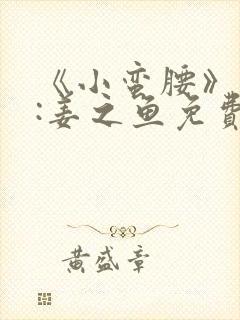 《小蛮腰》
:姜之鱼免費
黄盛章